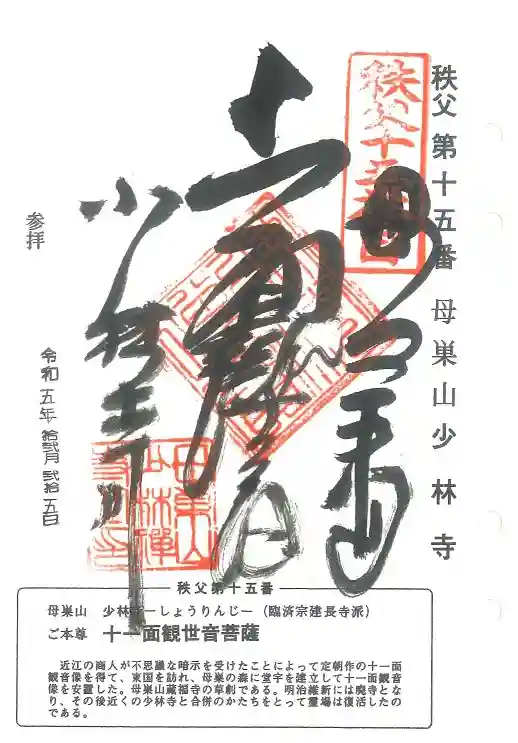 秩父第十五番 母巣山少林寺
秩父十五番
母巣山
十一面
少林寺
参拝
令和五年 拾弐月 弐拾五日
秩父第十五番
母巣山 少林寺―しょうりんじ―(臨済宗建長寺派)
ご本尊 十一面観世音菩薩
近江の商人が不思議な暗示を受けたことによって定朝作の十一面
観音像を得て、東国を訪れ、母巣の森に堂宇を建立して十一面観音
像を安置した。母巣山蔵福寺の草創である。明治維新には廃寺とな
り、その後近くの少林寺と合併のかたちをとって霊場は復活したの
である。